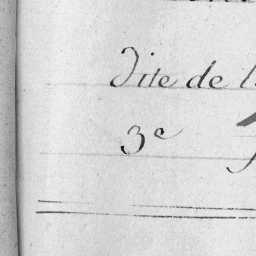 Dite de l
3e